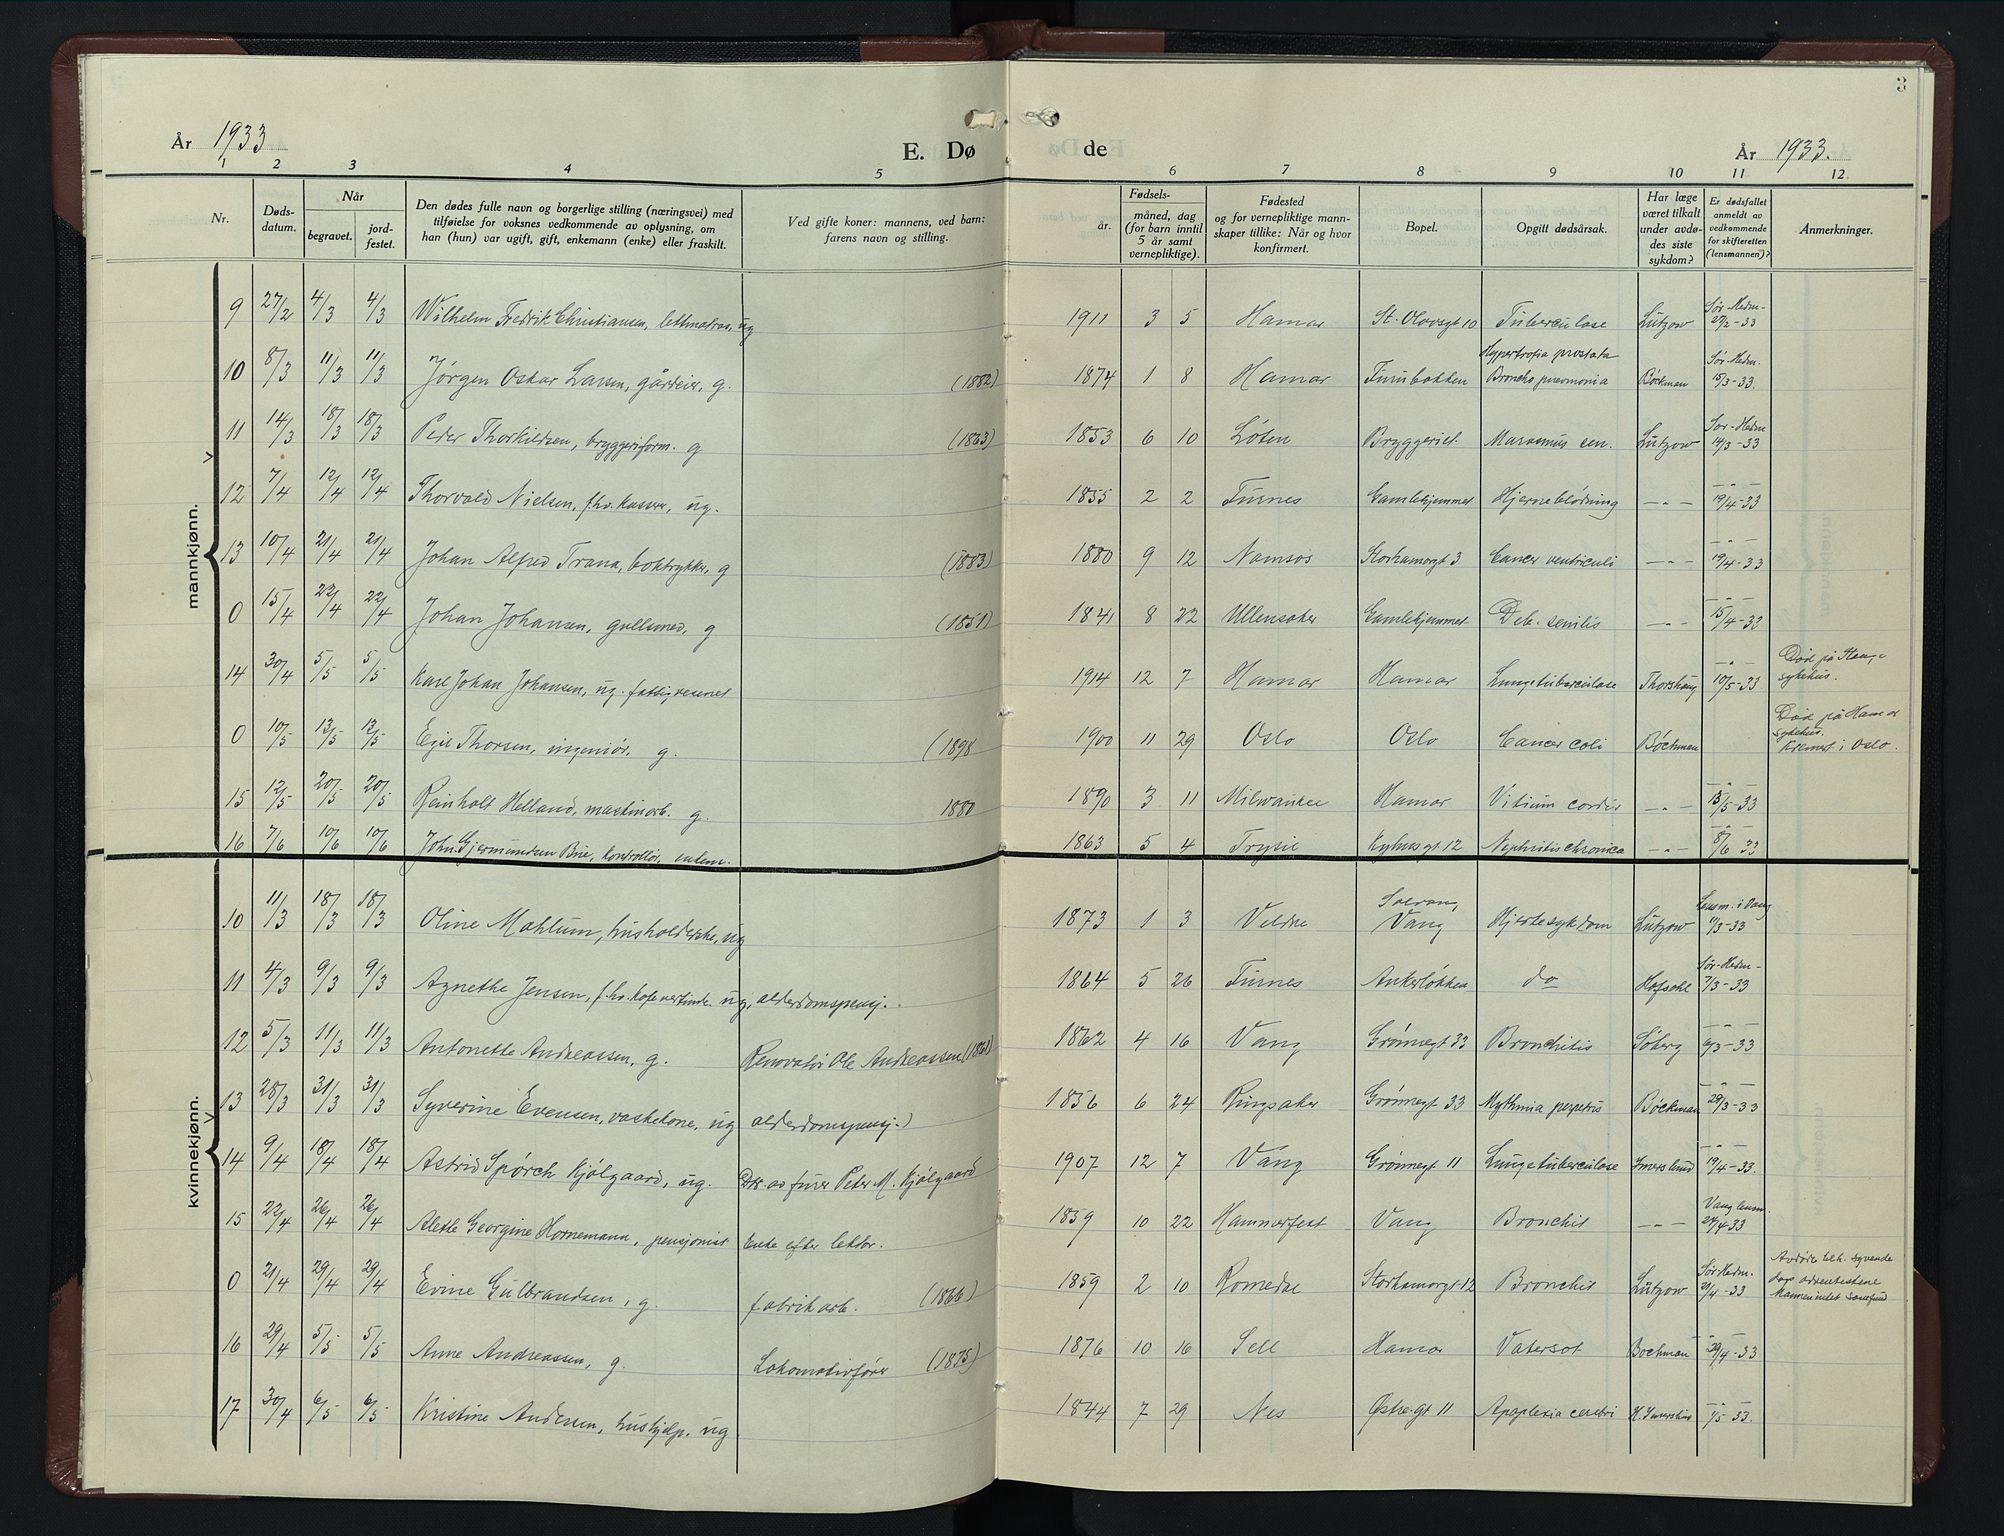 3
År 1933
E. Dø de
År 1933.
1 2 3 4 5 6 7 8 9 10 11 12.
Nr. Døds-datum. Når begravet. jord-festet. Den dødes fulle navn og borgerlige stilling (næringsvei) med tilføielse for voksnes vedkommende av oplysning, om han (hun) var ugift, gift, enkemann (enke) eller fraskilt. Ved gifte koner: mannens, ved barn: farens navn og stilling. år. Fødsels- måned, dag (for barn inntil 5 år samt vernepliktige). Fødested og for vernepliktige mann-skaper tillike: Når og hvor konfirmert. Bopel. Opgitt dødsårsak. Har læge været tilkalt under avdø-des siste sykdom? Er dødsfallet anmeldt av vedkommende for skifteretten (lensmannen)? Anmerkninger.
mannkjønn.
9 27/2 4/3 4/3 Wilhelm Fredrik Christiansen, lettmatros, ug 1911 3 5 Hamar St. Olavsgt 10 Tuberculose Lützow Sør-Hedm- 27/2-33
10 8/3 11/3 11/3 Jørgen Oskar Larsen, gårdeier, g. (1882) 1874 1 8 Hamar Furubakken Hypertrofia prostata Broncho pneumonia Bøckman Sør-Hedm. 15/3-33.
11 14/3 18/3 18/3 Peder Thorkildsen, bryggeriform. g (1863) 1853 6 10 Løten Bryggeriet Marasmus sen. Lützow Sør-Hedm 14/3-33
12 7/4 12/4 12/4 Thorvald Nielsen, f.hv. kasserer, ug. 1855 2 2 Furnes Gamlehjemmet Hjerneblødning -"- -"- 19/4-33
13 10/4 21/4 21/4 Johan Alfred Trana, boktrykker, g (1883) 1880 9 12 Namsos Storhamargt 3 Cancer ventriculi -"- -"- 19/4-33
0 15/4 22/4 22/4 Johan Johansen, gullsmed, g (1851) 1841 8 22 Ullensaker Gamlehjemmet Deb. senilis -"- -"- 15/4-33
14 30/4 5/5 5/5 Kåre Johan Johansen, ug. 1914 12 7 Hamar Hamar Lungetuberculose Thorshaug -"- 10/5-33 Død på Stange sykehus.
0 10/5 13/5 12/5 Egil Thorsen, ingeniør. g. (1898 1900 11 29 Oslo Oslo Cancer coli Bøckman Død på Hamar sykehus. Kremert i Oslo.
15 12/5 20/5 20/5 Reinholt Helland, maskinarb. g. 1880 1890 3 11 Milwaukee Hamar Vitium cordis -"- -"- 15/5-33
16 7/6 10/6 10/6 John Gjermundsen Brie, kontrollør, enkem. 1863 5 4 Trysil 12 Nephritis chronica -"- -"- 8/6 33
kvinnekjønn.
10 11/3 18/3 18/3 Oline Mæhlum, husholderske, ug 1873 1 3 Veldre Solvang, Vang Hjertesykdom Lützow Lensm. i Vang 11/3-33
11 4/3 9/3 9/3 Agnethe Jensen, f.hv. kafevertinde. ug, alderdomspensj. 1864 5 26 Furnes Ankerløkken do Hofsøhl Sør-Hedm- 7/3-33
12 5/3 11/3 11/3 Antonette Andreassen, g. Renovatør Ole Andreassen (1861) 1862 4 16 Vang Grønnegt 33 Bronchitis Søberg -"- 6/3-33
13 28/3 31/3 31/3 Syverine Evensen, vaskekone, ug alderdomspensj.) 1856 6 24 Ringsaker Grønnegt 33 Bøckman -"- 29/3-33
14 9/4 18/4 18/4 Astrid Spørch Kjölgaard, ug. Peter M. Kjölgaard 1907 12 7 Vang Grønnegt 11 Lungetuberculose Imerslund -"- 19/4-33.
15 22/4 26/4 26/4 Alette Georgine Hornemann, pensjonist Enke efter lektor. 1859 10 22 Hammerfest Vang Bronchit -"- Vang lensm. 24/4-33
0 21/4 29/4 29/4 Evine Gulbrandsen, g. fabrikarb. (1866) 1859 2 10 Romedal Storhamargt 12 Bronchit Lützow Sør-Hedm. 21/4-33 Avdøde tilh. syvende dags adventistene Mannen intet samfund
16 29/4 5/5 5/5 Anne Andreassen, g. Lokomotivfører (1875) 1876 10 16 Sell Hamar Vatersot Bøckman -"- 29/4-33
17 30/4 6/5 6/5 Kristine Andersen, hushjelp. ug 1844 7 29 Nes Østregt 11 Apoplexia cerebri -"- 1/5-33.